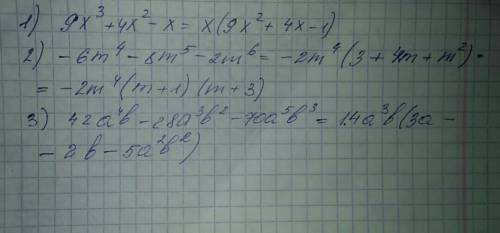 1) 9x³ + 4x² - x = x(9x² + 4x - 1)
2) -6m⁴ - 8m⁵ - 2m⁶ = -2m⁴(3 + 4m + m²) =
= -2m⁴(m+1)(m+3)
3) 42a⁴b - 28a³b² - 70a⁵b³ = 14a³b(3a -
- 2b - 5a²b²)